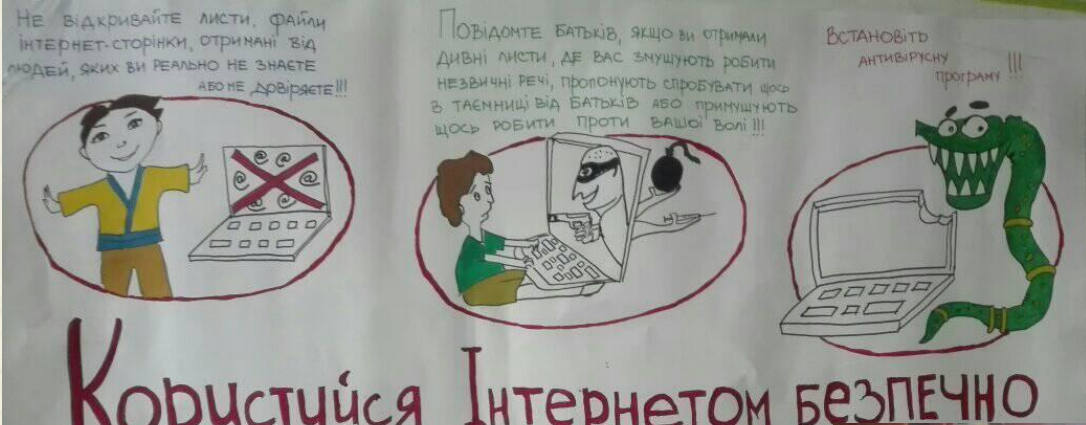 Не відкривайте листи, файли
інтернет-сторінки, отримані від
людей, яких ви реально не знаєте
або не довіряєте!!!
Повідомте батьків, якщо ви отримали
дивні листи, де вас змушують робити
незвичні речі, пропонують спробувати щось
в таємниці від батьків або примушують
щось робити проти вашої волі!!!
Встановіть
антивірусну
програму!!!
@ @
@ @
@ @
Користуйся Інтернетом безпечно